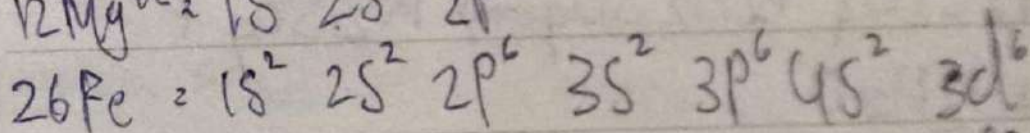 12Mg
26Fe = 1S² 2S² 2P⁶ 3S² 3P⁶ 4S² 3d⁶